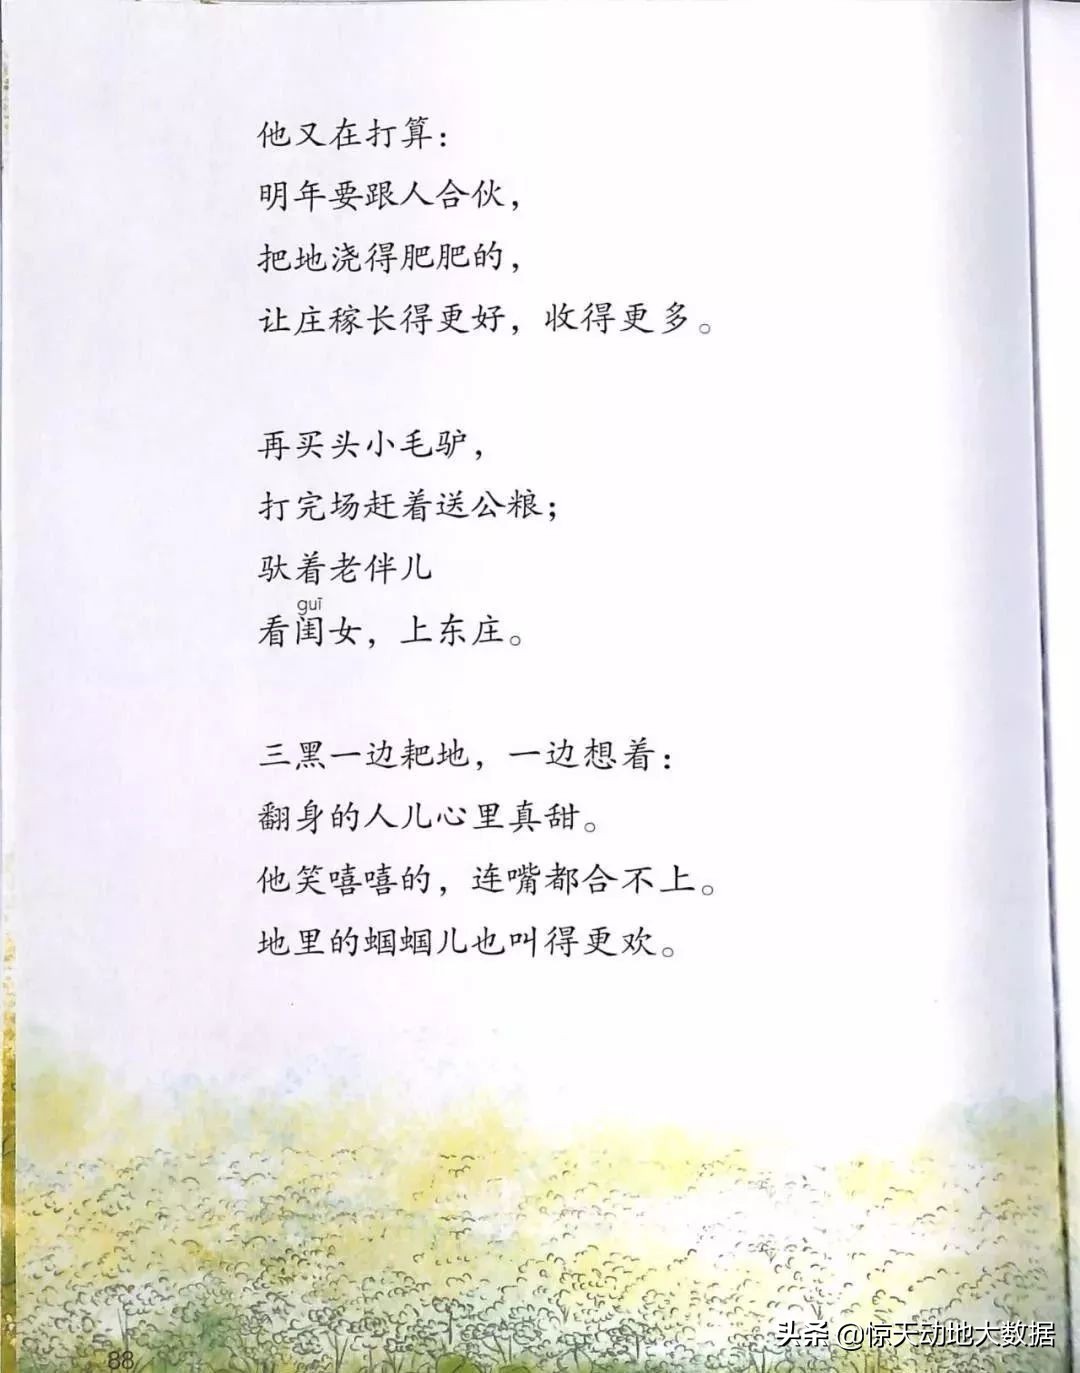 他又在打算：
明年要跟人合伙，
把地浇得肥肥的，
让庄稼长得更好，收得更多。
再买头小毛驴，
打完场赶着送公粮；
驮着老伴儿
guī
看闺女，上东庄。
三黑一边耙地，一边想着：
翻身的人儿心里真甜。
他笑嘻嘻的，连嘴都合不上。
地里的蝈蝈儿也叫得更欢。
88
头条 @惊天动地大数据